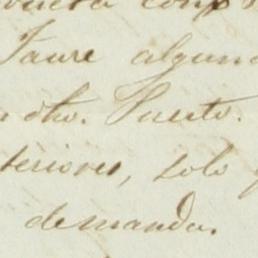 Faure alguna
dho. Puerto.
teriores, solo
demanda.